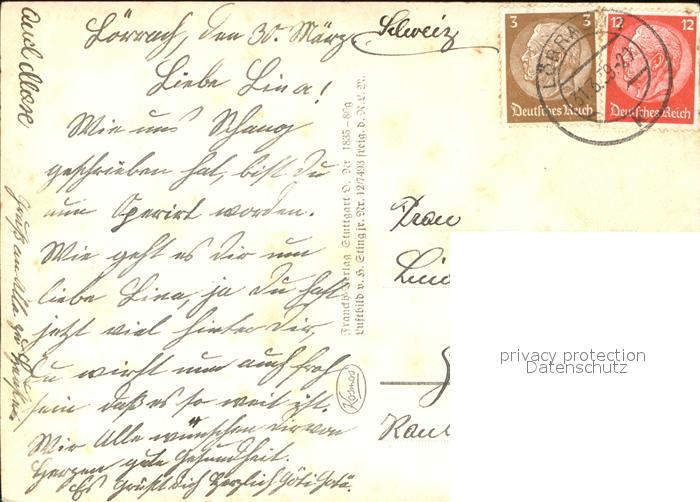 Lörrach, den 30. März
Schweiz
Liebe Lina!
Wie uns Schang
geschrieben hat, bist du
nun Operirt worden.
Wie geht es dir nun
liebe Lina, ja du hast
jetzt viel hinter dir,
Du wirst nun auch froh
sein daß es so weit ist.
Wir Alle wünschen dir von
Herzen gute Gesundheit.
Es Grüßt dich herzlich
Gruß an Alle
3 3
Deutsches Reich
12 12
Deutsches Reich
LÖRRA
Franckh-Verlag Stuttgart-O. Nr. 1835-86g
Luftbild v. H. Stingjr. Nr. 12/7493 freig. d. R.L.M.
Kosmos
Frau
privacy protection
Datenschutz